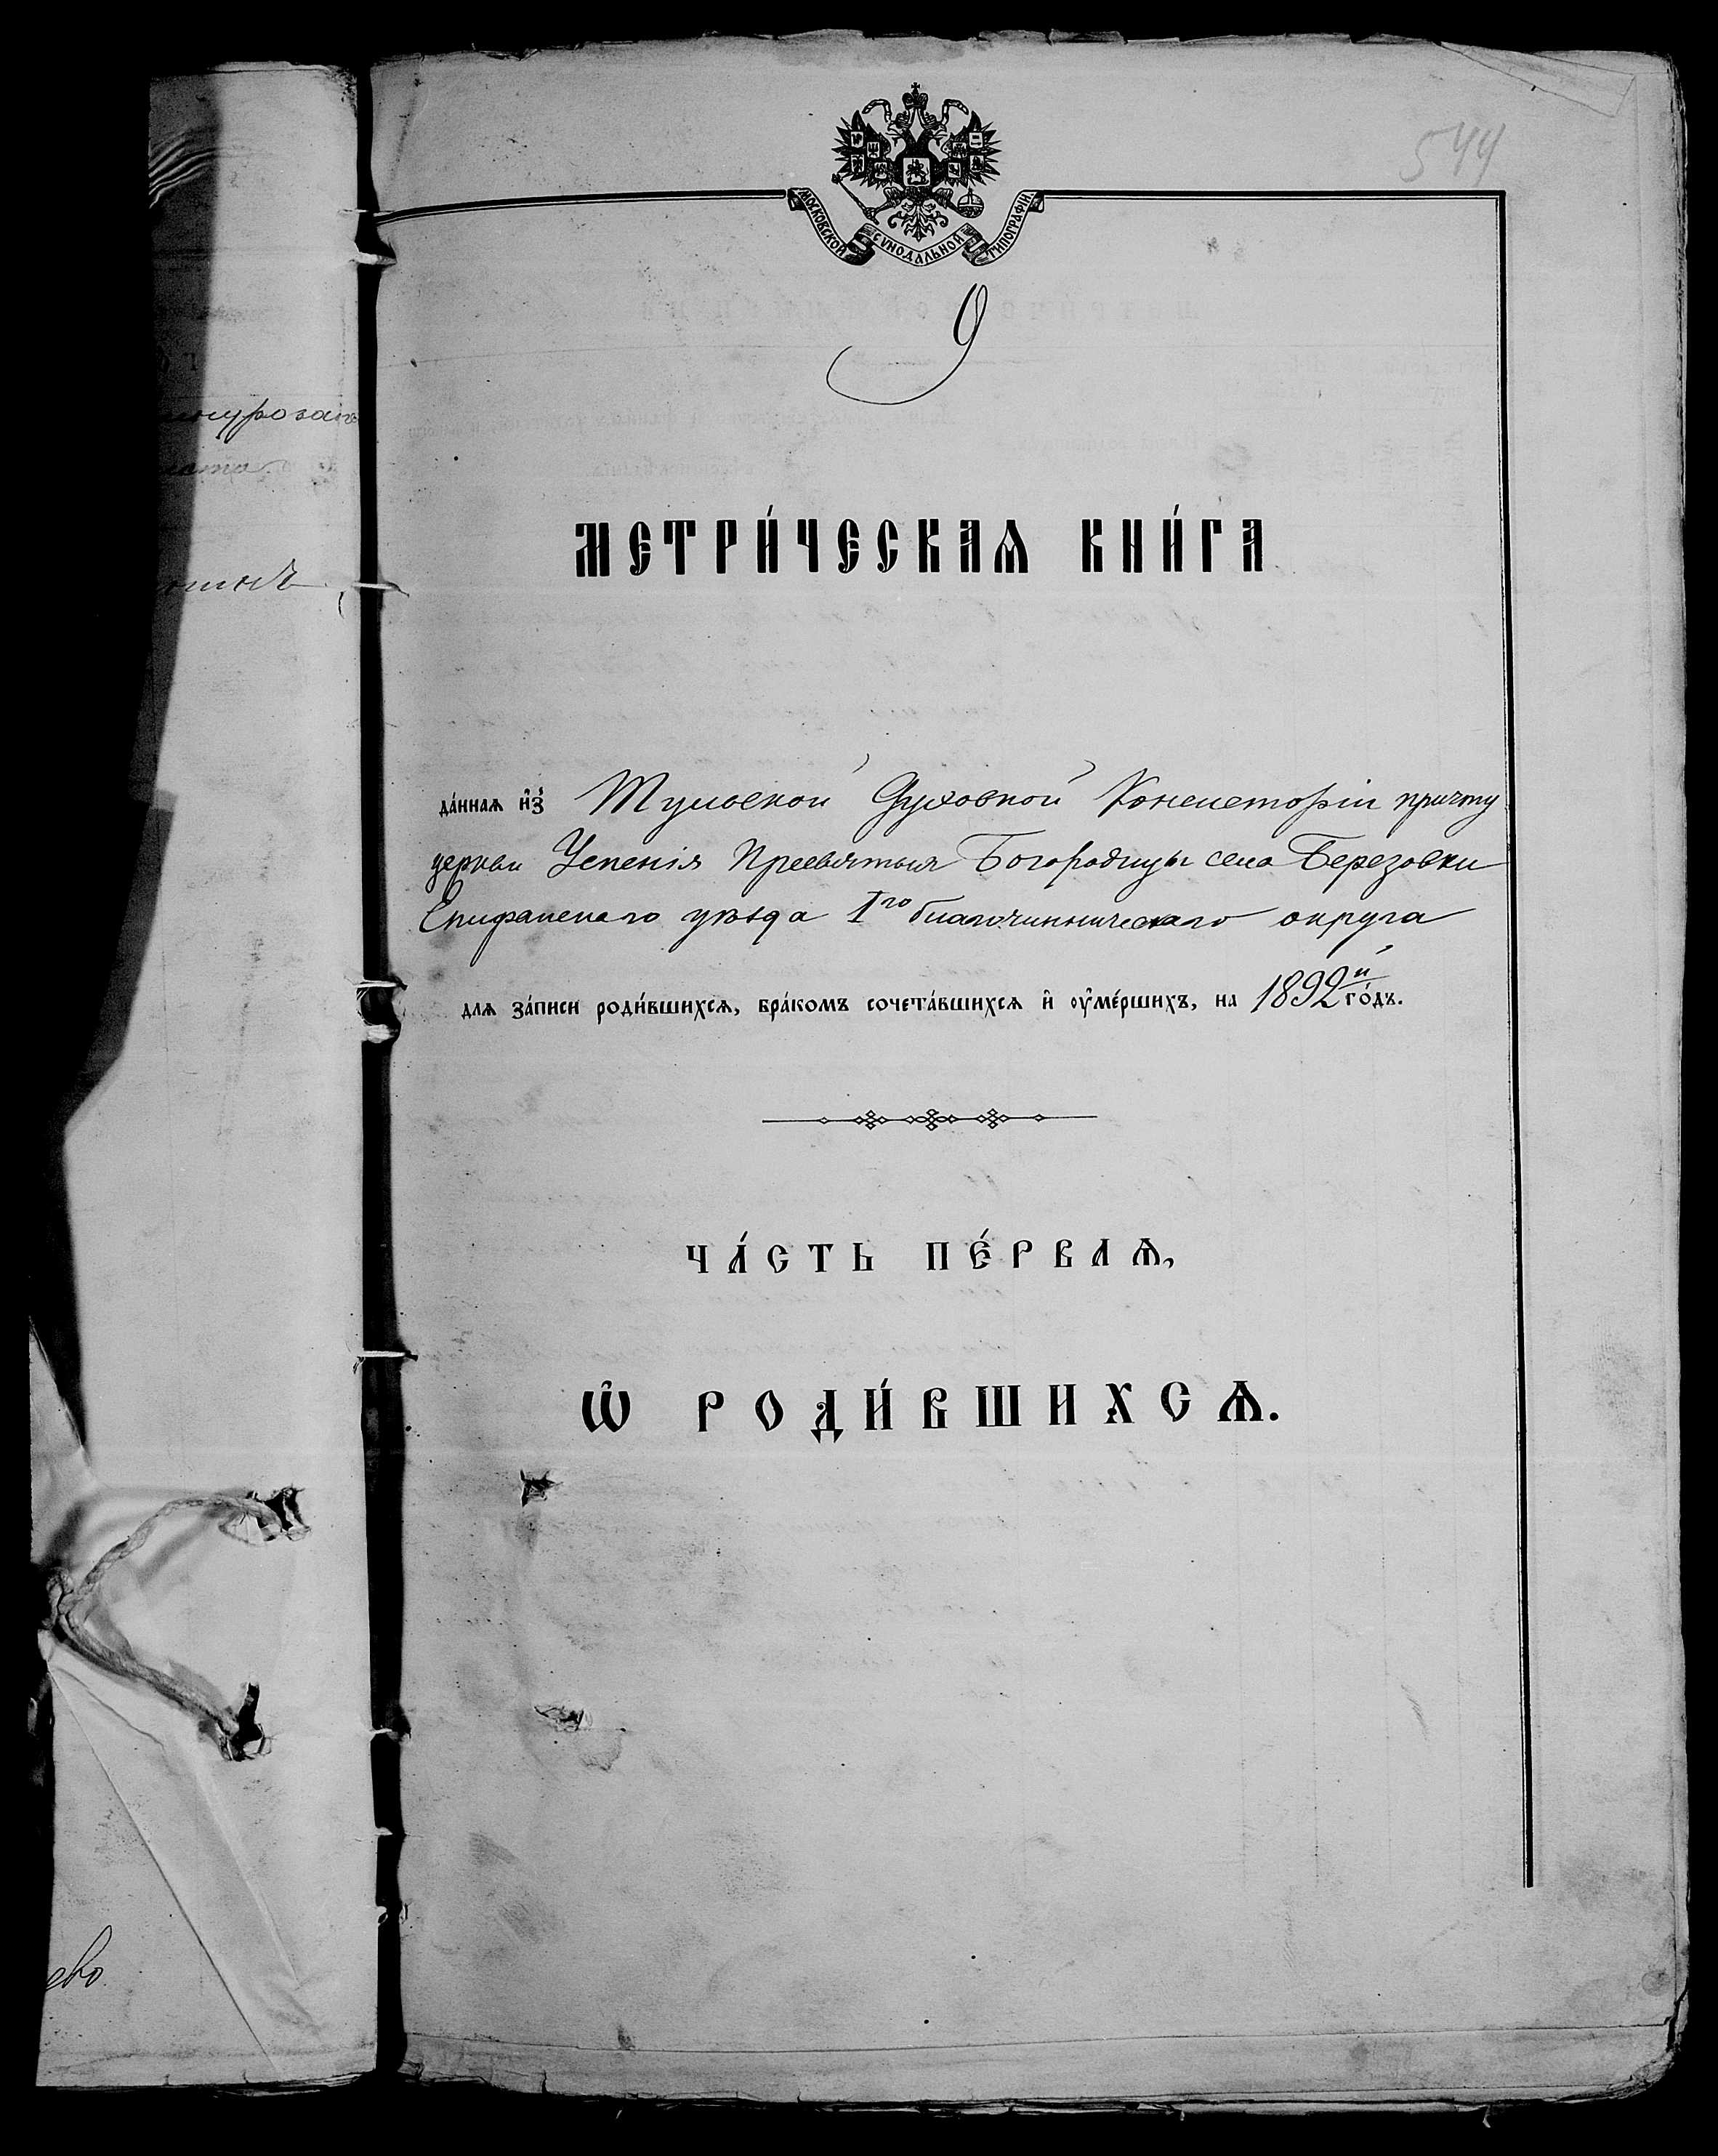 544
МОСКОВСКОЙ СѴНОДАЛЬНОЙ ТИПОГРАФІИ.
9
МЕТРИ́ЧЕСКАѦ КНИ́ГА
да́ннаѧ и҆зъ Тульской Духовной Консисторіи причту
церкви Успенія Пресвятыя Богородицы села Березовки
Епифанскаго уѣзда 1го благочинническаго округа
для за́писи роди́вшихсѧ, бра́комъ сочета́вшихсѧ и҆ оу҆ме́ршихъ, на 1892й го́дъ.
ЧА́СТЬ ПЕ́РВАѦ,
Ѽ РОДИ́ВШИХСѦ.